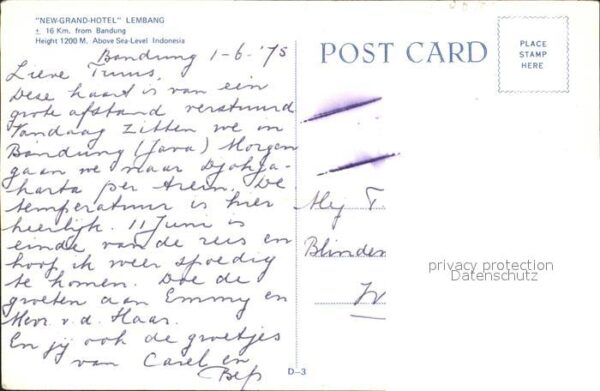 "NEW-GRAND-HOTEL" LEMBANG
± 16 Km. from Bandung
Height 1200 M. Above Sea-Level Indonesia
Bandung 1-6-'75
Lieve Truus,
Deze kaart is van een
grote afstand verstuurd
Vandaag zitten we in
Bandung (Java) Morgen
gaan we naar Djokja-
karta per trein. De
temperatuur is hier
heerlijk. 11 Juni is
einde van de reis en
hoop ik weer spoedig
te komen. Doe de
groeten aan Emmy en
Mevr. v.d. Haar.
En jij ook de groetjes
van Carel en
Bep
D-3
POST CARD
PLACE
STAMP
HERE
Mej T.
Blinden
privacy protection
Datenschutz